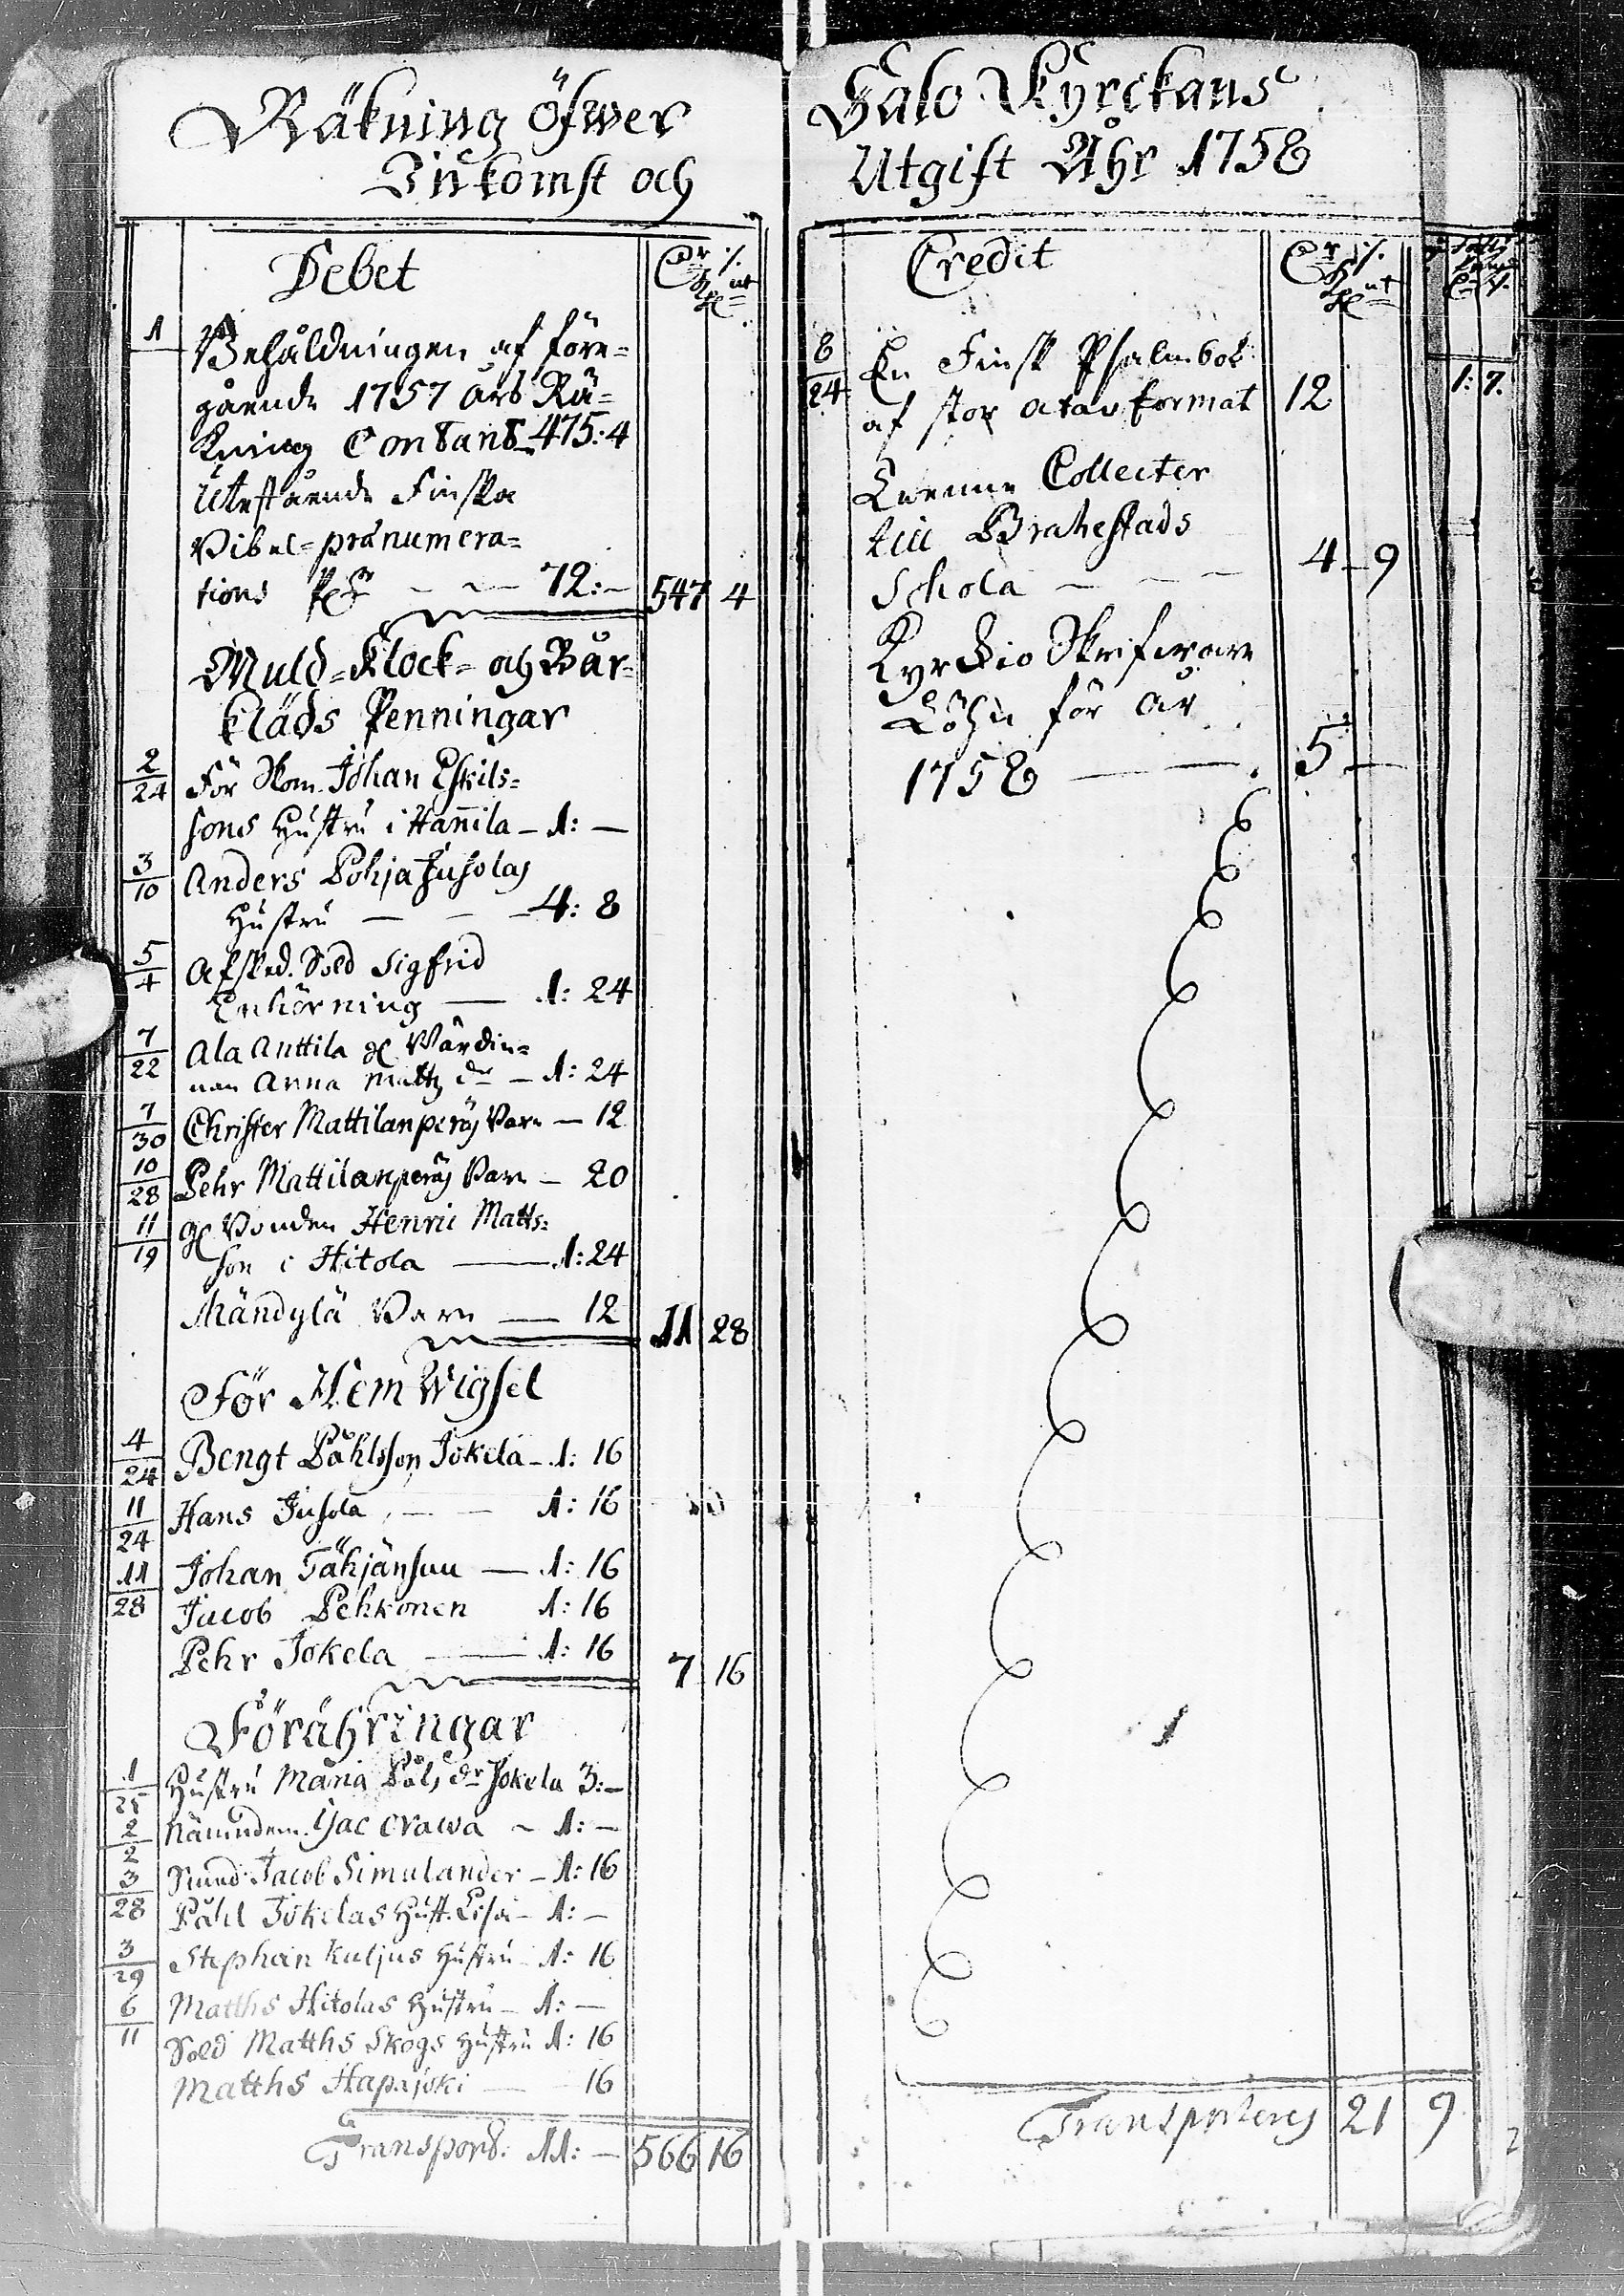 Räkning öfwer
Inkomst och
Debet
C r ./.
Kp nt
1 Behåldningen af före=
gående 1757 års Rä=
kning Contant 475: 4
Utestående Finska
Bibel=prænumera=
tions 72: — 547 4
Muld=Klock= och Bår=
kläds Penningar
2/24 För Skom. Johan Eskils=
sons Hustru i Hannila — 1: —
3/10 Anders Pohja Jusolas
Hustru — — 4: 8
5/4 Afsked. Sold Sigfrid
Enhörning — 1: 24
7/22 Ala Anttila gl. Wärdin=
nan Anna Matts dr — 1: 24
7/30 Christer Mattilanperäs Barn — 12
10/28 Pehr Mattilanperäs Barn — 20
11/19 gl Bonden Henric Matts=
son i Hitola — 1: 24
Mändylä Barn — 12 11 28
För Hem Wigsel
4/24 Bengt Påhlsson Jokela — 1: 16
11/24 Hans Jusola — 1: 16
11/28 Johan Tähjänsuu — 1: 16
Jacob Pehkonen 1: 16
Pehr Jokela — 1: 16 7 16
Förähringar
1/25 Hustru Maria Påls dr Jokela 3: —
2/2 Nämndem. Isac Orawa — 1: —
3/28 Jacob Simulander — 1: 16
Påhl Jokelas Hust. Lisa — 1: —
3/29 Stephan Kuljus Hustru — 1: 16
6/11 Matths Hitolas Hustru — 1: —
Sold Matths Skogs Hustru 1: 16
Matths Hapajoki — 16
Transport: 11: — 566 16
Salo Kyrckans
Utgift Åhr 1758
Credit
C r ./.
Kp nt
8/24 En Finsk Psalmbok
af stor octav format 12 1: 7.
Tvenne Collecter
till Brahestads
Schola — — — 4 — 9
Kyrckio Skrifware
Löhn för år
1758 — — 5 —
Transporteras 21 9